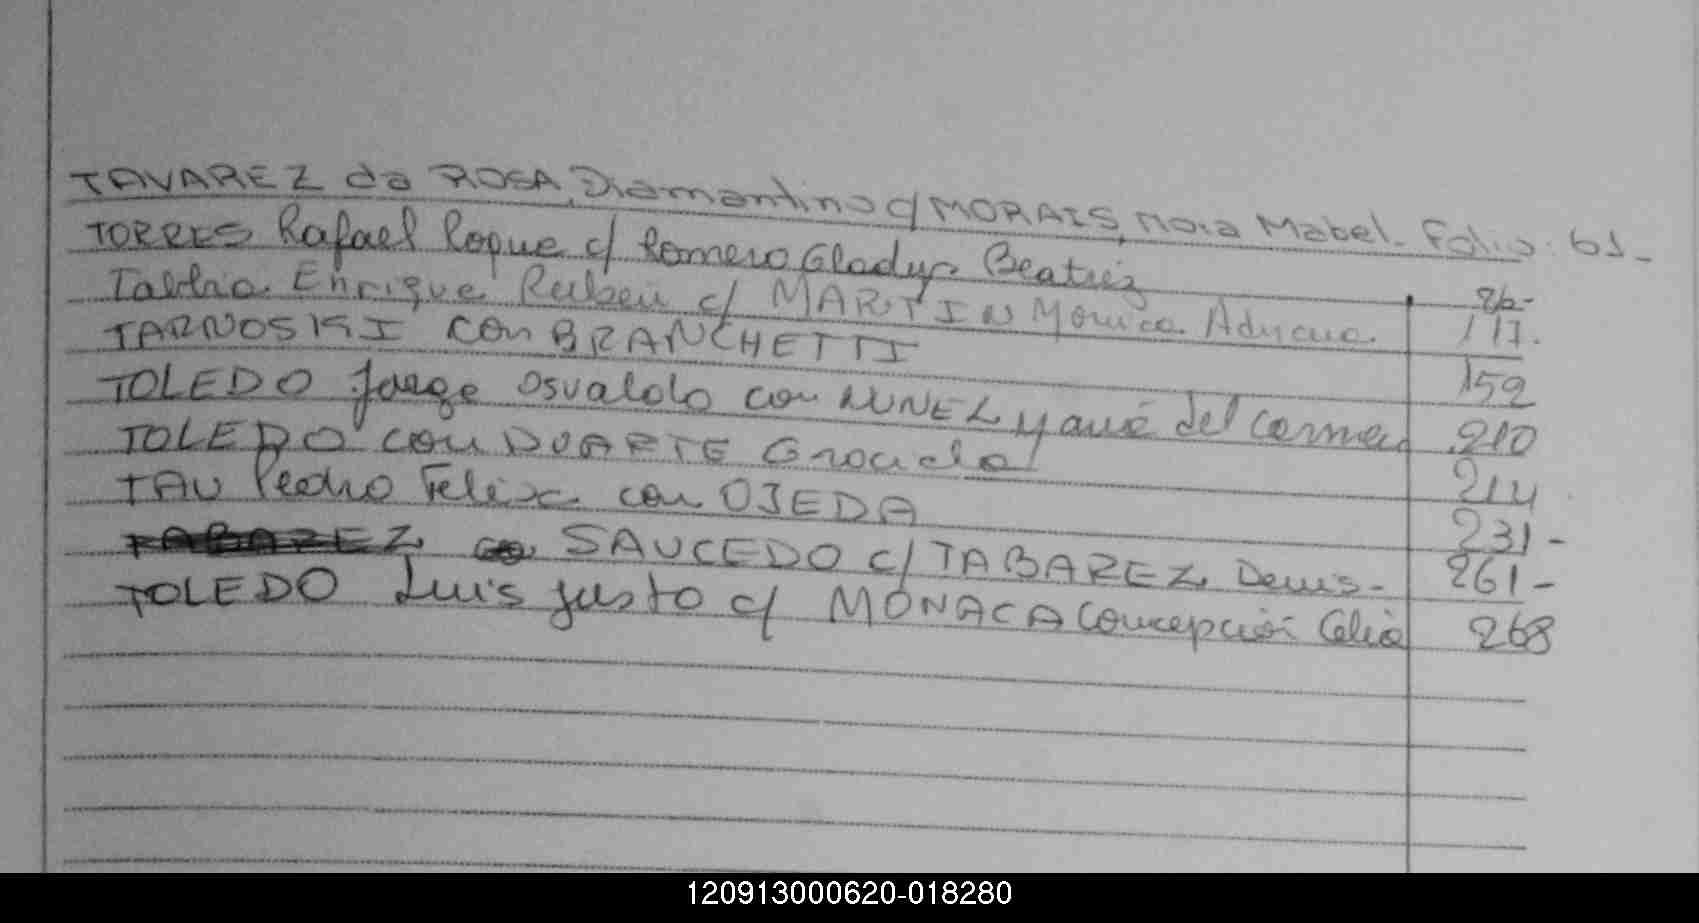 TAVAREZ da ROSA, Diamantino c/ MORAIS, Nora Mabel. Folio: 61-
TORRES Rafael Roque c/ Romero Gladys Beatriz
Enrique Ruben c/ MARTIN Monica Adriana 117.
TARNOSKI con BRANCHETTI 159
TOLEDO Jorge Osvaldo con NUNEZ del Carmen 210
TOLEDO con DUARTE Graciela 214
TAU Pedro Felix con OJEDA 231-
TABAREZ SAUCEDO c/ TABAREZ Denis- 261-
TOLEDO Luis Justo c/ MONACA Concepción Celia 268
120913000620-018280